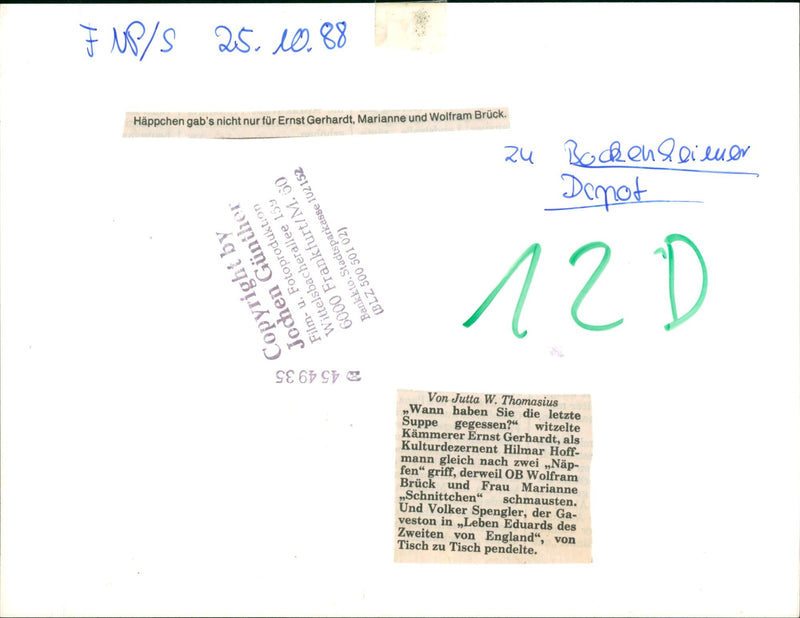 F NP/S 25.10.88
Häppchen gab's nicht nur für Ernst Gerhardt, Marianne und Wolfram Brück.
zu Bockenheimer
Depot
12D
Copyright by
Jochen Günther
Film- u. Fotoproduktion
Wittelsbacherallee 159
6000 Frankfurt/M. 60
Bankkto. Stadtsparkasse 102152
(BLZ 500 501 02)
☎ 45 49 35
Von Jutta W. Thomasius
„Wann haben Sie die letzte
Suppe gegessen?“ witzelte
Kämmerer Ernst Gerhardt, als
Kulturdezernent Hilmar Hoff-
mann gleich nach zwei „Näp-
fen“ griff, derweil OB Wolfram
Brück und Frau Marianne
„Schnittchen“ schmausten.
Und Volker Spengler, der Ga-
veston in „Leben Eduards des
Zweiten von England“, von
Tisch zu Tisch pendelte.